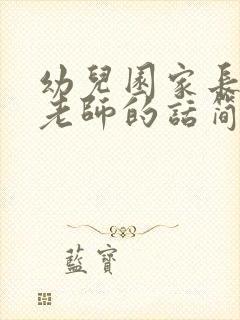 幼兒園家長
老師的話簡
藍寶